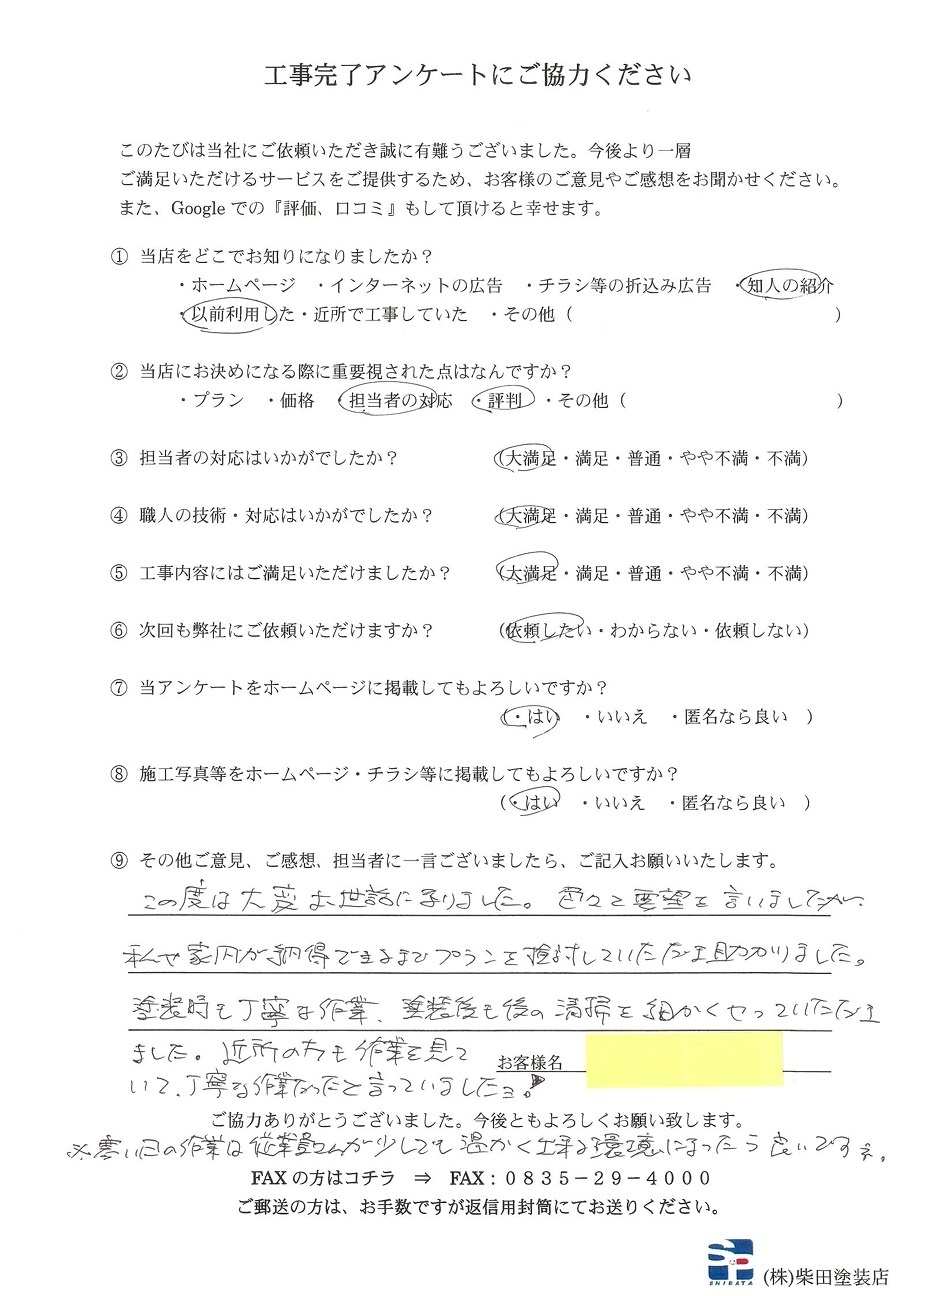 工事完了アンケートにご協力ください
このたびは当社にご依頼いただき誠に有難うございました。今後より一層
ご満足いただけるサービスをご提供するため、お客様のご意見やご感想をお聞かせください。
また、Google での『評価、口コミ』もして頂けると幸せます。
① 当店をどこでお知りになりましたか？
・ホームページ ・インターネットの広告 ・チラシ等の折込み広告 ・知人の紹介
・以前利用した・近所で工事していた ・その他（ ）
② 当店にお決めになる際に重要視された点はなんですか？
・プラン ・価格 ・担当者の対応 ・評判 ・その他（ ）
③ 担当者の対応はいかがでしたか？ （大満足・満足・普通・やや不満・不満）
④ 職人の技術・対応はいかがでしたか？ （大満足・満足・普通・やや不満・不満）
⑤ 工事内容にはご満足いただけましたか？ （大満足・満足・普通・やや不満・不満）
⑥ 次回も弊社にご依頼いただけますか？ （依頼したい・わからない・依頼しない）
⑦ 当アンケートをホームページに掲載してもよろしいですか？
（・はい ・いいえ ・匿名なら良い ）
⑧ 施工写真等をホームページ・チラシ等に掲載してもよろしいですか？
（・はい ・いいえ ・匿名なら良い ）
⑨ その他ご意見、ご感想、担当者に一言ございましたら、ご記入お願いいたします。
この度は大変お世話に成りました。色々と要望を言いましたが、
私や家内が納得できるまでプランを検討していただき助かりました。
塗装時も丁寧な作業、塗装後も後の清掃を細かくやっていただき
ました。近所の方も作業を見て
お客様名
いて、丁寧な作業だったと言っていましたよ。
ご協力ありがとうございました。今後ともよろしくお願い致します。
※寒い日の作業は従業員さんが少しでも温かく出来る環境になったら良いですネ。
FAX の方はコチラ ⇒ FAX：０８３５－２９－４０００
ご郵送の方は、お手数ですが返信用封筒にてお送りください。
SHIBATA
(株)柴田塗装店